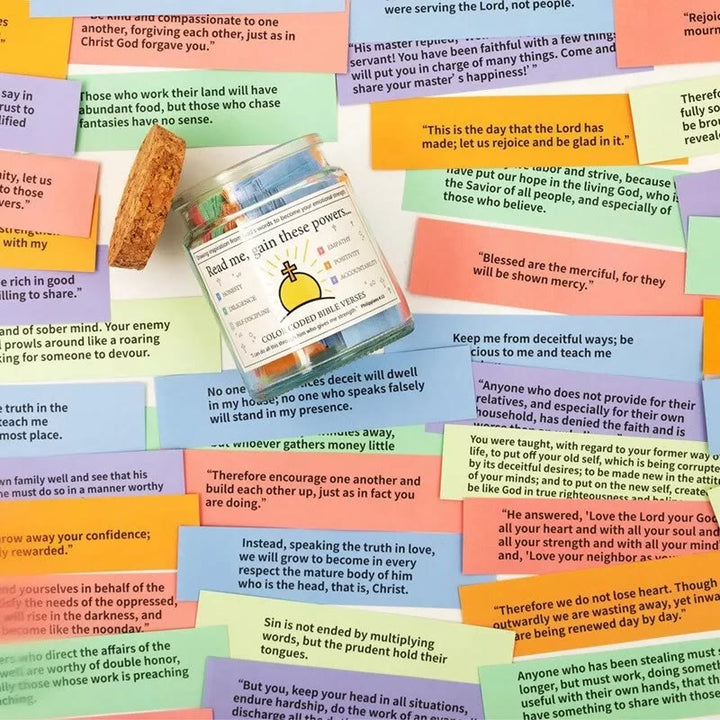 were serving the Lord, not people.
"Rejoi
mourn
es
n."
Be kind and compassionate to one
another, forgiving each other, just as in
Christ God forgave you."
"His master replied, 'Well
servant! You have been faithful with a few things
will put you in charge of many things. Come and
share your master's happiness!'"
say in
rust to
lified
Those who work their land will have
abundant food, but those who chase
fantasies have no sense.
"This is the day that the Lord has
made; let us rejoice and be glad in it."
Therefo
fully so
be brou
reveale
nity, let us
to those
vers."
labor and strive, because
have put our hope in the living God, who is
the Savior of all people, and especially of
those who believe.
strengthen
with my
Drawing inspiration from God's words to become your emotional strength
Read me, gain these powers...
HONESTY
DILIGENCE
SELF-DISCIPLINE
EMPATHY
POSITIVITY
ACCOUNTABILITY
COLOR-CODED BIBLE VERSES
"I can do all this through him who gives me strength." Philippians 4:13
"Blessed are the merciful, for they
will be shown mercy."
e rich in good
illing to share."
and of sober mind. Your enemy
l prowls around like a roaring
king for someone to devour.
Keep me from deceitful ways; be
cious to me and teach me
No one
ces deceit will dwell
in my house; no one who speaks falsely
will stand in my presence.
"Anyone who does not provide for their
relatives, and especially for their own
household, has denied the faith and is
truth in the
teach me
most place.
dwindles away,
but whoever gathers money little
You were taught, with regard to your former way of
life, to put off your old self, which is being corrupte
by its deceitful desires; to be made new in the attitu
of your minds; and to put on the new self, create
be like God in true righteousness and
wn family well and see that his
he must do so in a manner worthy
"Therefore encourage one another and
build each other up, just as in fact you
are doing."
row away your confidence;
ly rewarded."
"He answered, 'Love the Lord your God
all your heart and with all your soul and
all your strength and with all your mind
and, 'Love your neighbor as
Instead, speaking the truth in love,
we will grow to become in every
respect the mature body of him
who is the head, that is, Christ.
nd yourselves in behalf of the
isfy the needs of the oppressed,
will rise in the darkness, and
become like the noonday."
"Therefore we do not lose heart. Though
outwardly we are wasting away, yet inwa
are being renewed day by day."
Sin is not ended by multiplying
words, but the prudent hold their
tongues.
ers who direct the affairs of the
well are worthy of double honor,
ally those whose work is preaching
aching.
Anyone who has been stealing must s
longer, but must work, doing someth
useful with their own hands, that th
have something to share with those
"But you, keep your head in all situations,
endure hardship, do the work of an evang
discharge all the